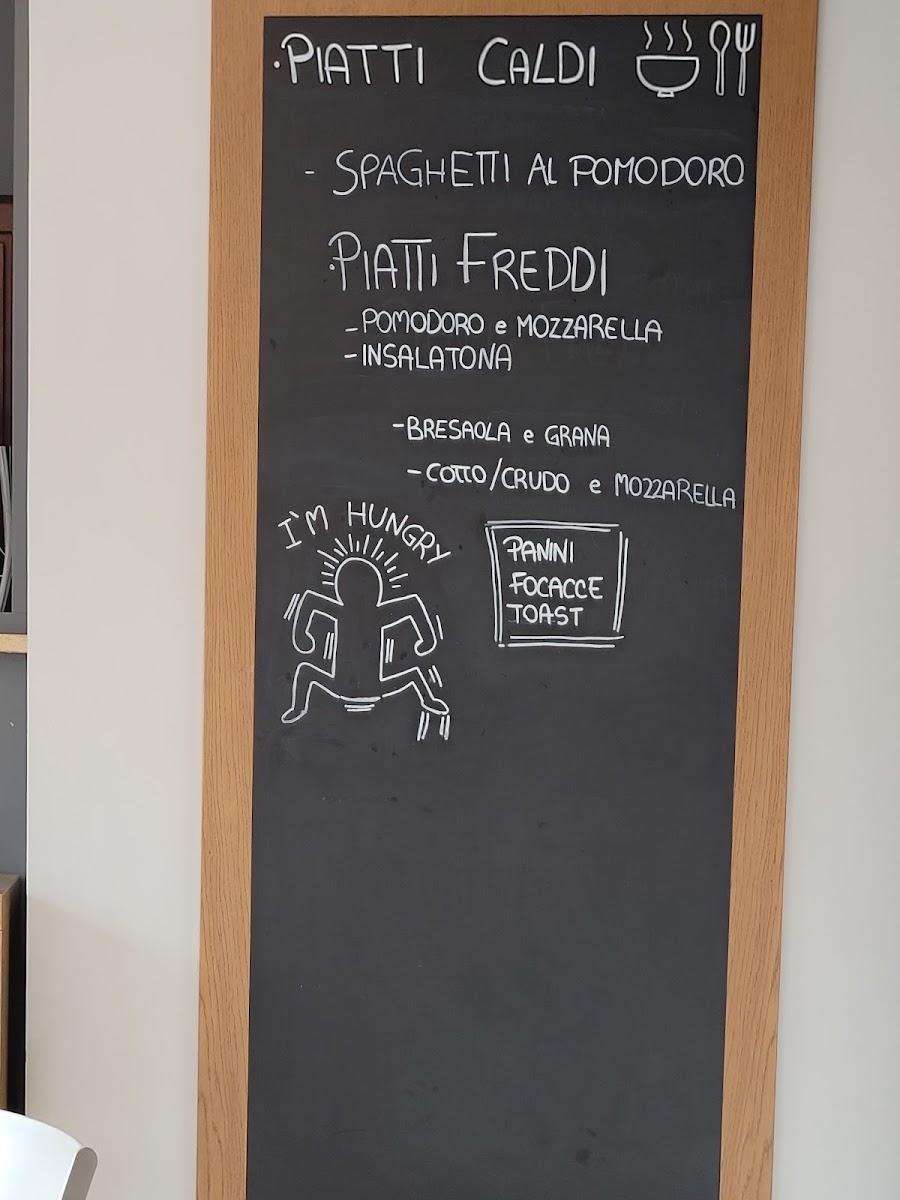 ·PIATTI CALDI
- SPAGHETTI AL POMODORO
·PIATTI FREDDI
- POMODORO e MOZZARELLA
- INSALATONA
- BRESAOLA e GRANA
- COTTO/CRUDO e MOZZARELLA
I'M HUNGRY
PANINI
FOCACCE
TOAST